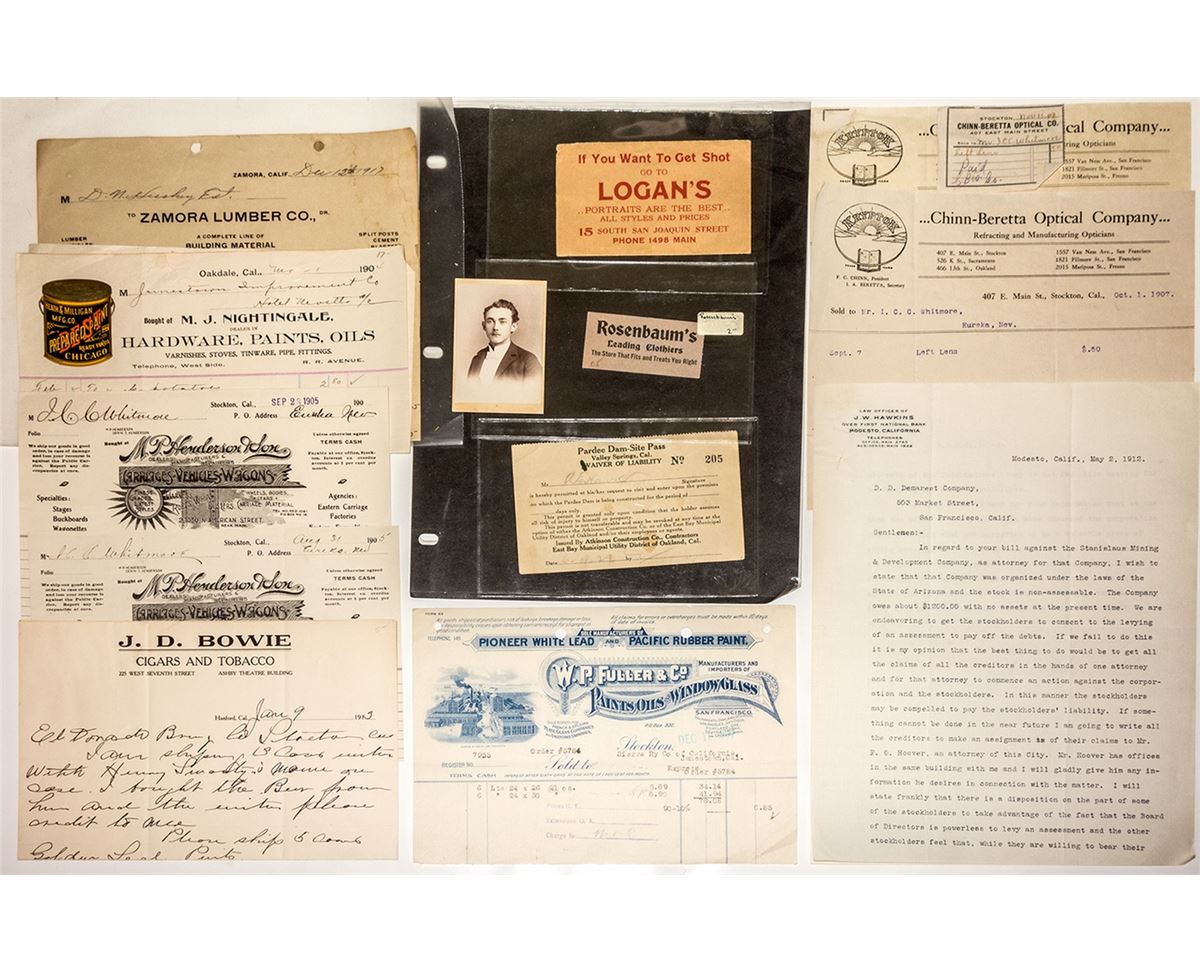 ZAMORA, CALIF. Dec 12th 1917
M
TO ZAMORA LUMBER CO., DR.
LUMBER
A COMPLETE LINE OF
BUILDING MATERIAL
SPLIT POSTS
CEMENT
Oakdale, Cal., 190
M Jamestown Improvement Co
Hotel Nevills
HEATH & MILLIGAN
MFG. CO.
PREPARED PAINT
READY FOR USE
CHICAGO
Bought of M. J. NIGHTINGALE,
DEALER IN
HARDWARE, PAINTS, OILS
VARNISHES, STOVES, TINWARE, PIPE, FITTINGS.
Telephone, West Side.
R. R. AVENUE.
potatoes 2 80
I. C. C. Whitmore
Stockton, Cal., SEP 25 1905 190
P. O. Address Eureka Nev
Folio
We ship your goods in good order, in case of damage and loss your recourse is against the Public Carrier. Report any discrepancies at once.
Bought of
M. P. Henderson & Son,
CARRIAGES-VEHICLES-WAGONS
Unless otherwise agreed
TERMS CASH
Payable at our office, Stockton. Interest on overdue accounts at 1 per cent per month.
Specialties:
Stages
Buckboards
Wagonettes
WHEELS, BODIES,
CARRIAGE MATERIAL
AMERICAN STREET
Agencies:
Eastern Carriage
Factories
M I. C. C. Whitmore
Stockton, Cal., Aug 31 1905
P. O. Address Eureka, Nev
Folio
Bought of
M. P. Henderson & Son,
CARRIAGES-VEHICLES-WAGONS
Unless otherwise agreed
TERMS CASH
J. D. BOWIE
CIGARS AND TOBACCO
225 WEST SEVENTH STREET ASHBY THEATRE BUILDING
Hanford, Cal., Jany 9 1913
El Dorado Brwg Co Stockton
I am shiping 13 Cases
With Henry name on
case. I bought the Beer from
him and the please
credit to mee
Please ship 5 Cases
Golden Lead Pints
If You Want To Get Shot
GO TO
LOGAN'S
..PORTRAITS ARE THE BEST..
ALL STYLES AND PRICES
15 SOUTH SAN JOAQUIN STREET
PHONE 1498 MAIN
Rosenbaum's
Leading Clothiers
The Store That Fits and Treats You Right
Rosenbaum's
Pardee Dam-Site Pass
Valley Springs, Cal.
WAIVER OF LIABILITY No 205
Mr. Signature
is hereby permitted at his/her request to visit and enter upon the premises
on which the Pardee Dam is being constructed for the period of
days only.
This permit is granted only upon condition that the holder assumes
all risk of injury to himself or property.
This permit is not transferable and may be revoked at any time at the
option of either the Atkinson Construction Co. or of the East Bay Municipal
Utility District of Oakland and/or their employees or agents.
Issued By Atkinson Construction Co., Contractors
East Bay Municipal Utility District of Oakland, Cal.
Date
All claims for errors or overcharges must be made within 10 days
of date of invoice
SOLE MANUFACTURERS OF
PIONEER WHITE LEAD AND PACIFIC RUBBER PAINT.
W. P. FULLER & CO
MANUFACTURERS AND
IMPORTERS OF
PAINTS, OILS AND WINDOW GLASS
SAN FRANCISCO
P.O. Box 302
Stockton,
7933 Order #5784
REGISTER NO.
Sold to Sierra Ry Co of California,
Jamestown, Cal.
Order #5784
TERMS CASH
6 Lts 24 x 26 5.69 34.14
6 " 24 x 30 6.99 41.94
76.08
90-10% 6.85
Prices O. K.
Extensions O. K.
Charge to
KRYPTOK
...Chinn-Beretta Optical Company...
STOCKTON,
CHINN-BERETTA OPTICAL CO.
407 EAST MAIN STREET
SOLD TO Mr. I. C. C. Whitmore
Left Lens
Paid
1557 Van Ness Ave., San Francisco
1821 Fillmore St., San Francisco
2015 Mariposa St., Fresno
KRYPTOK
TRADE MARK
...Chinn-Beretta Optical Company...
Refracting and Manufacturing Opticians
407 E. Main St., Stockton
526 K St., Sacramento
466 13th St., Oakland
1557 Van Ness Ave., San Francisco
1821 Fillmore St., San Francisco
2015 Mariposa St., Fresno
F. C. CHINN, President
I. A. BERETTA, Secretary
407 E. Main St., Stockton, Cal., Oct. 1 1907.
Sold to Mr. I. C. C. Whitmore,
Eureka, Nev.
Sept. 7 Left Lens $.50
LAW OFFICES OF
J. W. HAWKINS
OVER FIRST NATIONAL BANK
MODESTO, CALIFORNIA
TELEPHONES
Modesto, Calif., May 2, 1912.
D. D. Demarest Company,
503 Market Street,
San Francisco, Calif.
Gentlemen:-
In regard to your bill against the Stanislaus Mining
& Development Company, as attorney for that Company, I wish to
state that that Company was organized under the laws of the
State of Arizona and the stock is non-assessable. The Company
owes about $1200.00 with no assets at the present time. We are
endeavoring to get the stockholders to consent to the levying
of an assessment to pay off the debts. If we fail to do this
it is my opinion that the best thing to do would be to get all
the claims of all the creditors in the hands of one attorney
and for that attorney to commence an action against the corpor-
ation and the stockholders. In this manner the stockholders
may be compelled to pay the stockholders' liability. If some-
thing cannot be done in the near future I am going to write all
the creditors to make an assignment of their claims to Mr.
F. C. Hoover, an attorney of this City. Mr. Hoover has offices
in the same building with me and I will gladly give him any in-
formation he desires in connection with the matter. I will
state frankly that there is a disposition on the part of some
of the stockholders to take advantage of the fact that the Board
of Directors is powerless to levy an assessment and the other
stockholders feel that, while they are willing to bear their